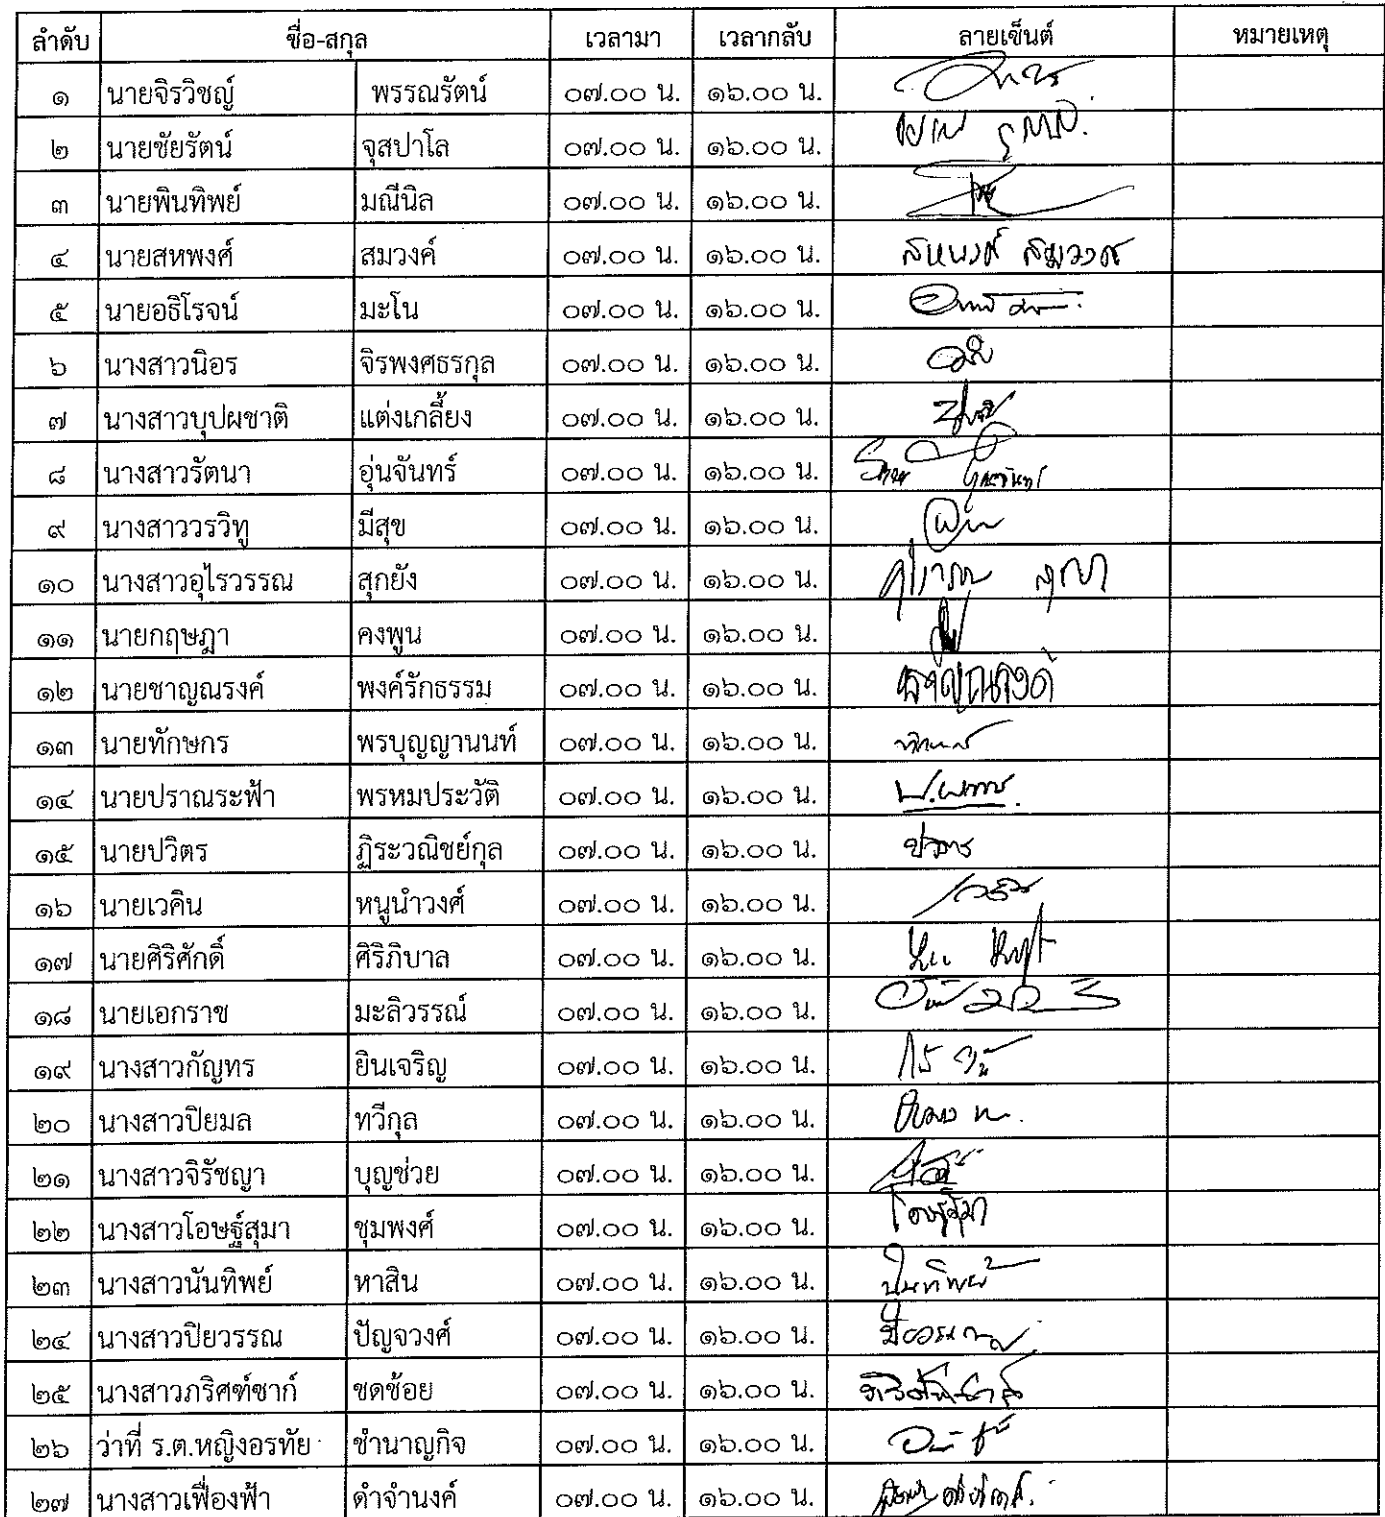 ลำดับ ชื่อ-สกุล เวลามา เวลากลับ ลายเซ็นต์ หมายเหตุ
๑ นายจิรวิชญ์ พรรณรัตน์ ๐๗.๐๐ น. ๑๖.๐๐ น.
๒ นายชัยรัตน์ จุสปาโล ๐๗.๐๐ น. ๑๖.๐๐ น.
๓ นายพินทิพย์ มณีนิล ๐๗.๐๐ น. ๑๖.๐๐ น.
๔ นายสหพงศ์ สมวงค์ ๐๗.๐๐ น. ๑๖.๐๐ น. สหพงศ์ สมวงค์
๕ นายอธิโรจน์ มะโน ๐๗.๐๐ น. ๑๖.๐๐ น.
๖ นางสาวนิอร จิรพงศธรกุล ๐๗.๐๐ น. ๑๖.๐๐ น.
๗ นางสาวบุปผชาติ แต่งเกลี้ยง ๐๗.๐๐ น. ๑๖.๐๐ น.
๘ นางสาวรัตนา อุ่นจันทร์ ๐๗.๐๐ น. ๑๖.๐๐ น.
๙ นางสาววรวิทู มีสุข ๐๗.๐๐ น. ๑๖.๐๐ น.
๑๐ นางสาวอุไรวรรณ สุกยัง ๐๗.๐๐ น. ๑๖.๐๐ น.
๑๑ นายกฤษฎา คงพูน ๐๗.๐๐ น. ๑๖.๐๐ น.
๑๒ นายชาญณรงค์ พงค์รักธรรม ๐๗.๐๐ น. ๑๖.๐๐ น. ชาญณรงค์
๑๓ นายทักษกร พรบุญญานนท์ ๐๗.๐๐ น. ๑๖.๐๐ น.
๑๔ นายปราณระฟ้า พรหมประวัติ ๐๗.๐๐ น. ๑๖.๐๐ น.
๑๕ นายปวิตร ภูิระวณิชย์กุล ๐๗.๐๐ น. ๑๖.๐๐ น.
๑๖ นายเวคิน หนูนำวงศ์ ๐๗.๐๐ น. ๑๖.๐๐ น.
๑๗ นายศิริศักดิ์ ศิริภิบาล ๐๗.๐๐ น. ๑๖.๐๐ น.
๑๘ นายเอกราช มะลิวรรณ์ ๐๗.๐๐ น. ๑๖.๐๐ น.
๑๙ นางสาวกัญทร ยินเจริญ ๐๗.๐๐ น. ๑๖.๐๐ น.
๒๐ นางสาวปิยมล ทวีกุล ๐๗.๐๐ น. ๑๖.๐๐ น.
๒๑ นางสาวจิรัชญา บุญช่วย ๐๗.๐๐ น. ๑๖.๐๐ น.
๒๒ นางสาวโอษฐ์สุมา ชุมพงศ์ ๐๗.๐๐ น. ๑๖.๐๐ น. โอษฐ์สุมา
๒๓ นางสาวนันทิพย์ หาสิน ๐๗.๐๐ น. ๑๖.๐๐ น. นันทิพย์
๒๔ นางสาวปิยวรรณ ปัญจวงศ์ ๐๗.๐๐ น. ๑๖.๐๐ น.
๒๕ นางสาวภริศฑ์ชาก์ ชดช้อย ๐๗.๐๐ น. ๑๖.๐๐ น.
๒๖ ว่าที่ ร.ต.หญิงอรทัย ชำนาญกิจ ๐๗.๐๐ น. ๑๖.๐๐ น.
๒๗ นางสาวเฟื่องฟ้า ดำจำนงค์ ๐๗.๐๐ น. ๑๖.๐๐ น.